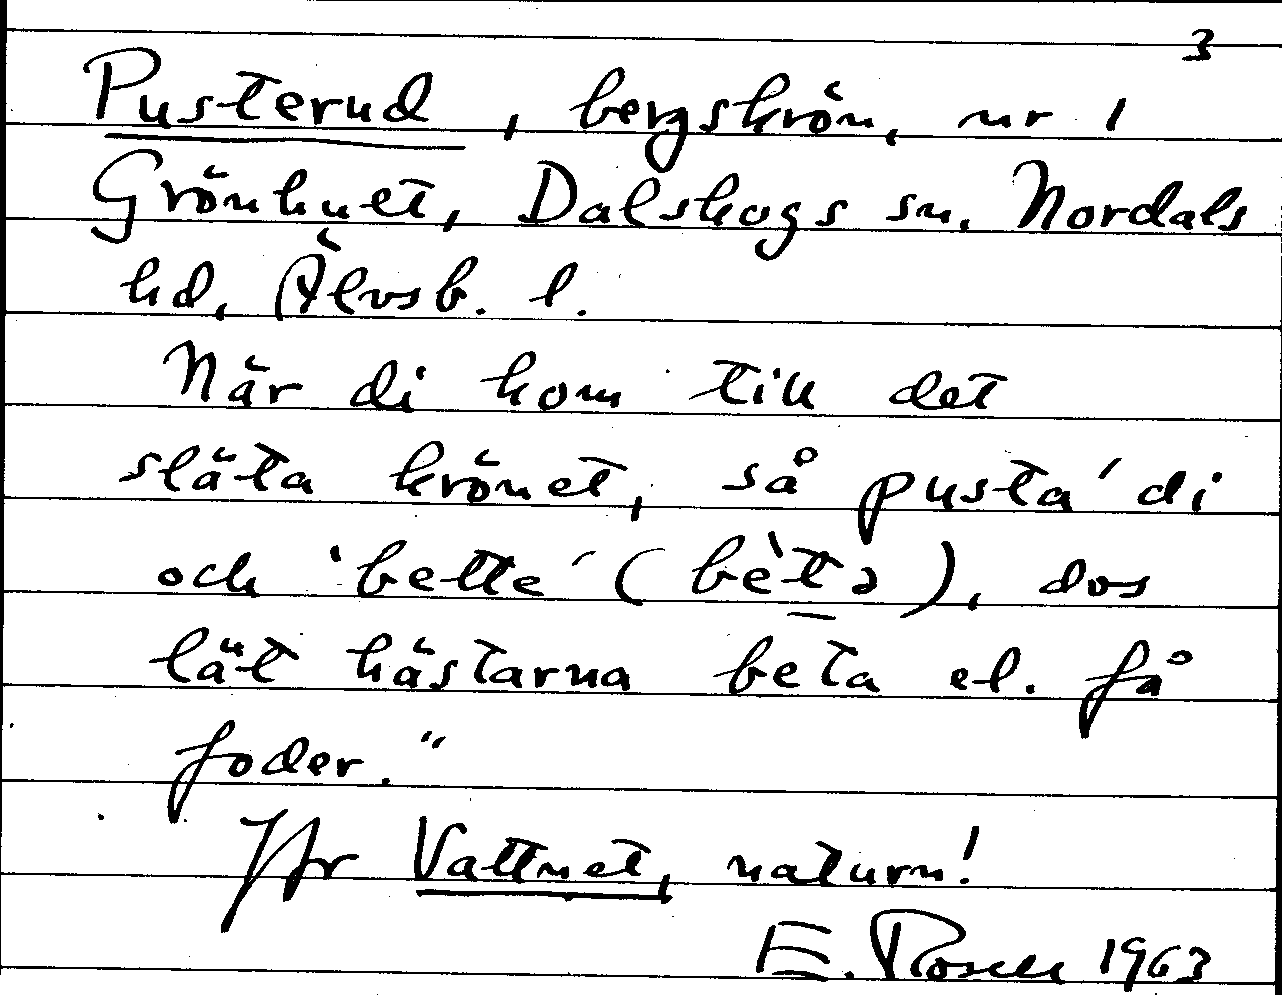 3
Pusterud, bergskrön, nr 1
Grönhult, Dalskogs sn. Nordals
hd, Älvsb. l.
När di kom till det
släta krönet, så pusta' di
och 'bette' (bètə), dvs
lät hästarna beta el. få
foder."
Jfr Vattnet, naturn!
E. Rosell 1963